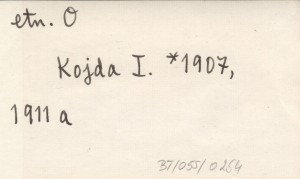 etn. O
Kojda I. *1907,
1911 a
BJ/055/0264